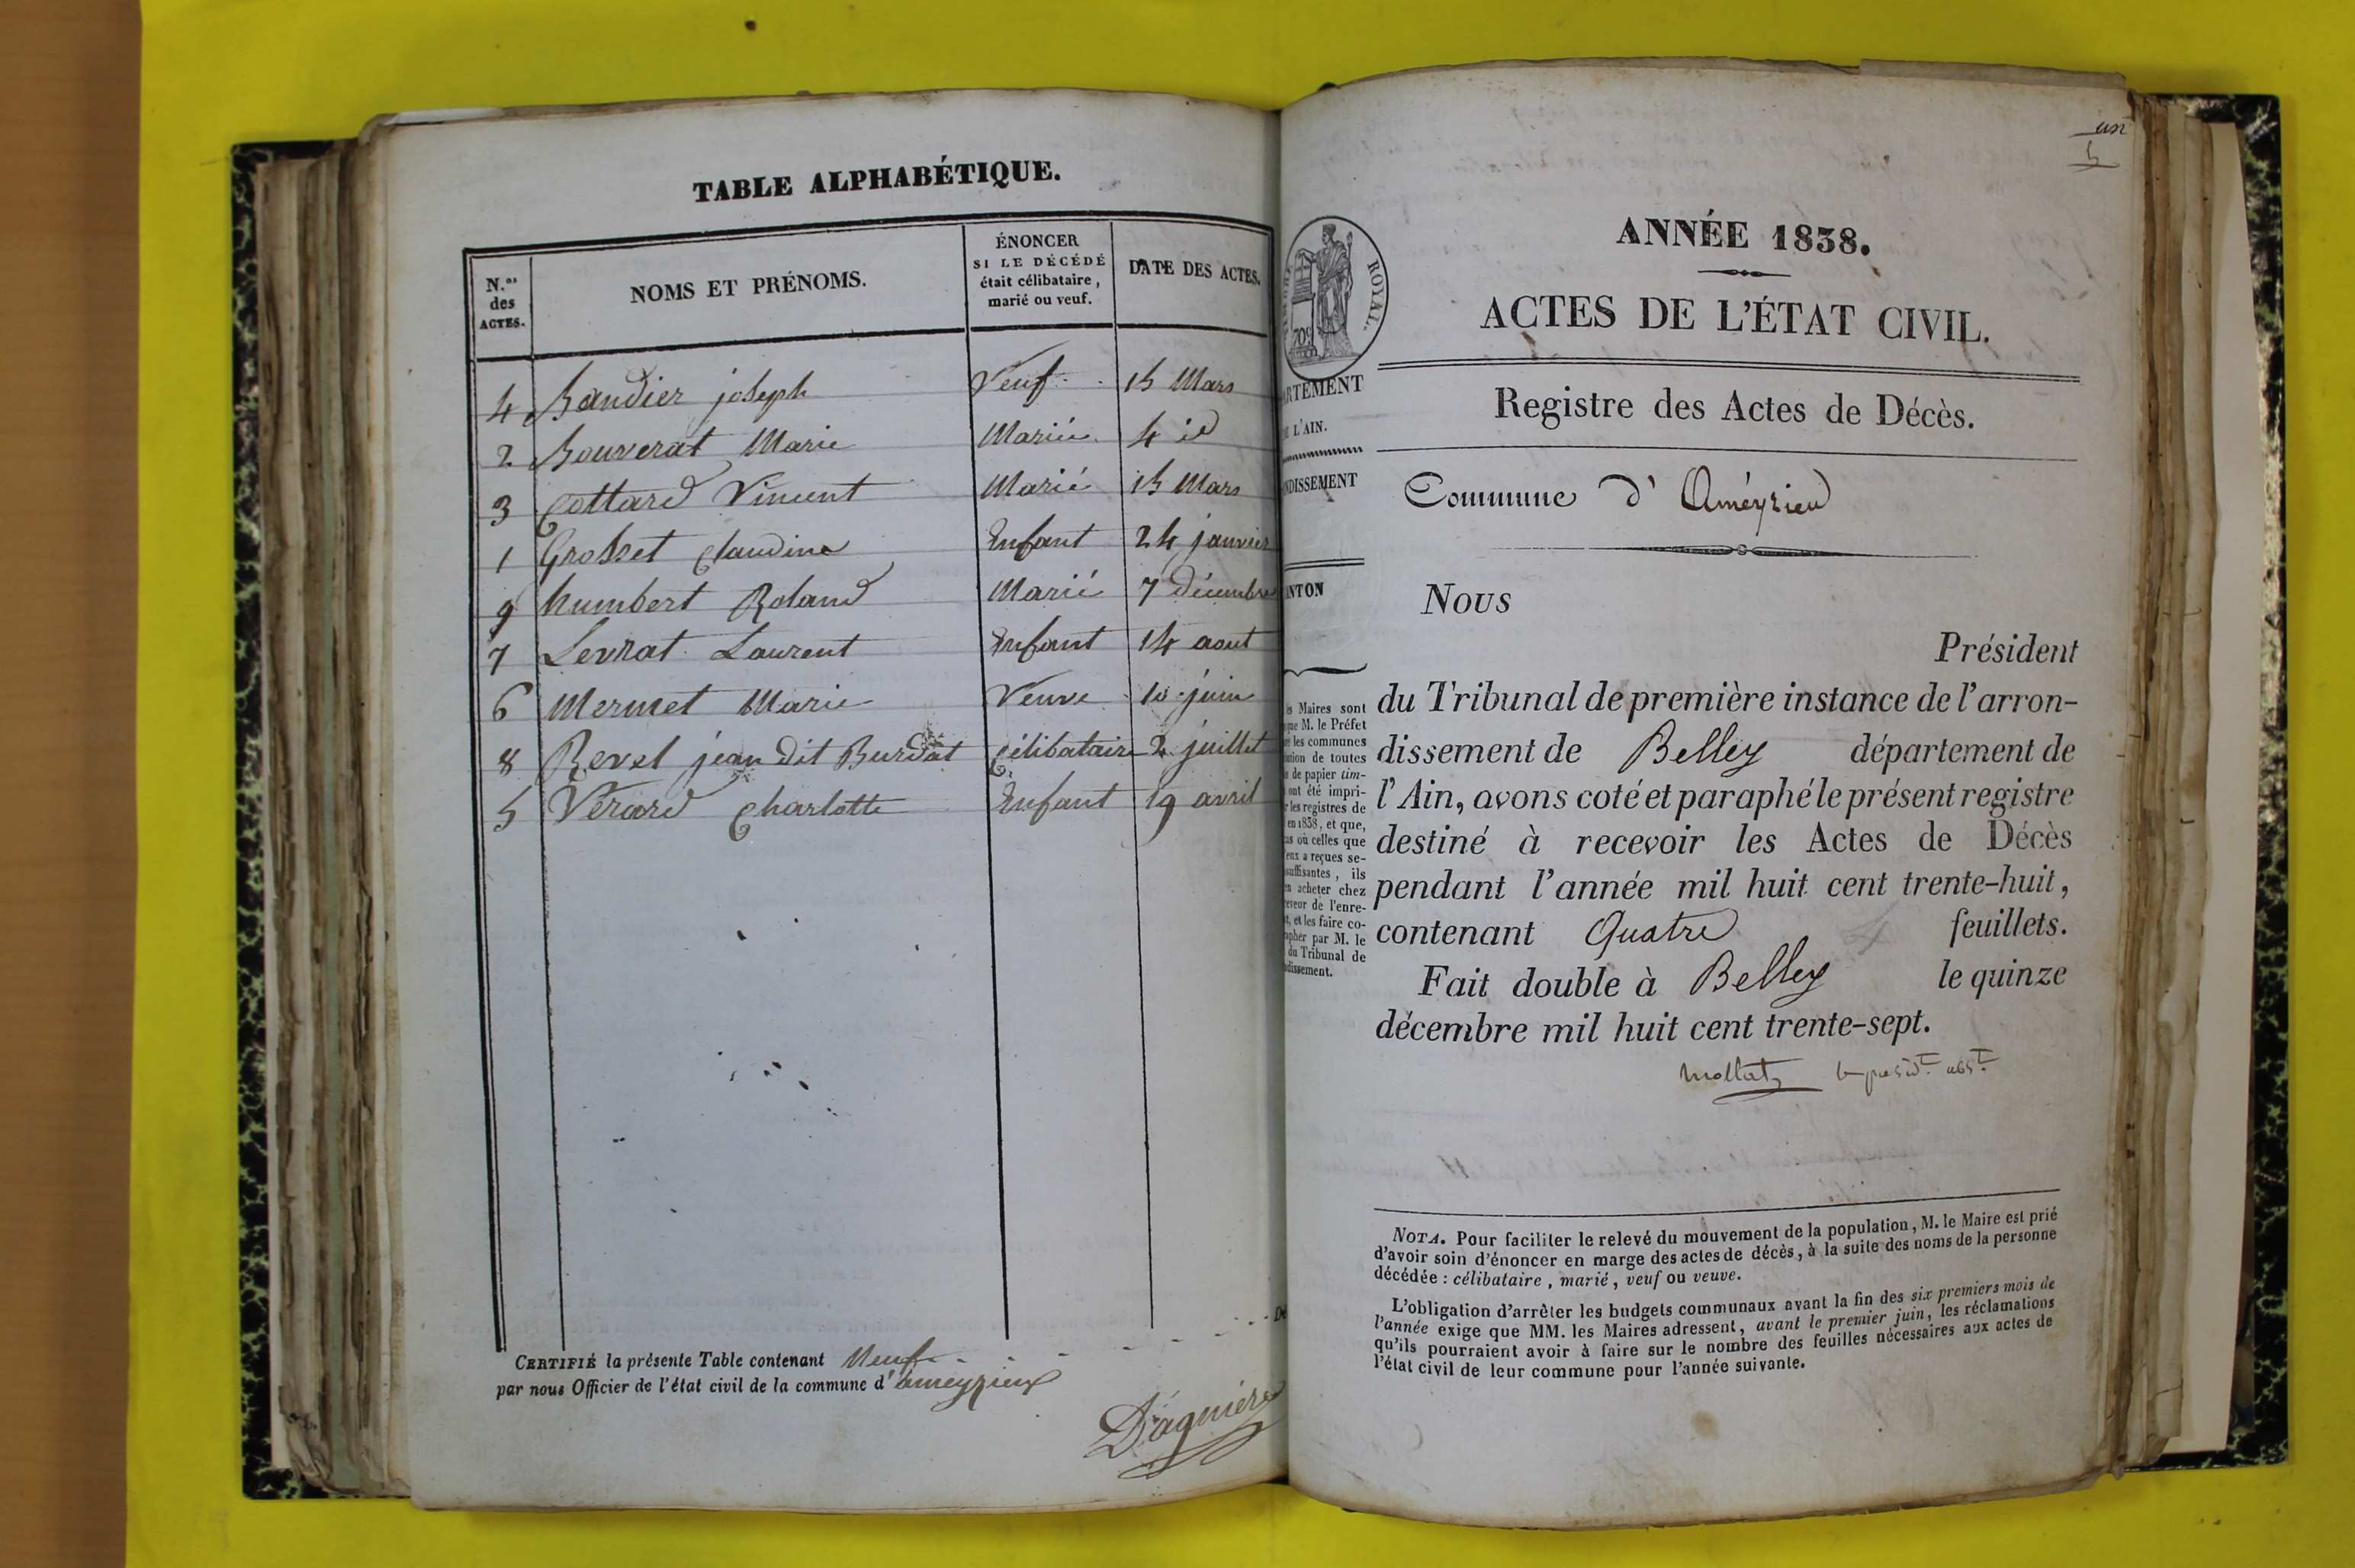 TABLE ALPHABÉTIQUE.
N.os des ACTES.
NOMS ET PRÉNOMS.
ÉNONCER
SI LE DÉCÉDÉ
était célibataire,
marié ou veuf.
DATE DES ACTES.
4 Bandier joseph Veuf 15 Mars
2 Bouverat Marie Mariée 4 id
3 Cottard Vincent Marié 15 Mars
1 Grosset Claudine Enfant 24 janvier
9 humbert Roland Marié 7 décembre
7 Levrat Laurent Enfant 14 aout
6 Mermet Marie Veuve 10 juin
8 Revel jean dit Burdat Célibataire 2 juillet
5 Verard Charlotte Enfant 19 avril
CERTIFIÉ la présente Table contenant Neuf
par nous Officier de l'état civil de la commune d'ameyzieux
un
ANNÉE 1838.
ACTES DE L'ÉTAT CIVIL.
ROYAL.
Registre des Actes de Décès.
L'AIN.
Commune d' Améyzieu
Nous
Président
du Tribunal de première instance de l'arron-
dissement de Belley département de
l'Ain, avons coté et paraphé le présent registre
destiné à recevoir les Actes de Décès
pendant l'année mil huit cent trente-huit,
contenant Quatre feuillets.
Fait double à Belley le quinze
décembre mil huit cent trente-sept.
Maires sont
M. le Préfet
les communes
de toutes
de papier tim-
ont été impri-
les registres de
en 1838, et que,
où celles que
a reçues se-
ils
acheter chez
de l'enre-
et les faire co-
par M. le
du Tribunal de
NOTA. Pour faciliter le relevé du mouvement de la population, M. le Maire est prié
d'avoir soin d'énoncer en marge des actes de décès, à la suite des noms de la personne
décédée : célibataire, marié, veuf ou veuve.
L'obligation d'arrêter les budgets communaux avant la fin des six premiers mois de
l'année exige que MM. les Maires adressent, avant le premier juin, les réclamations
qu'ils pourraient avoir à faire sur le nombre des feuilles nécessaires aux actes de
l'état civil de leur commune pour l'année suivante.